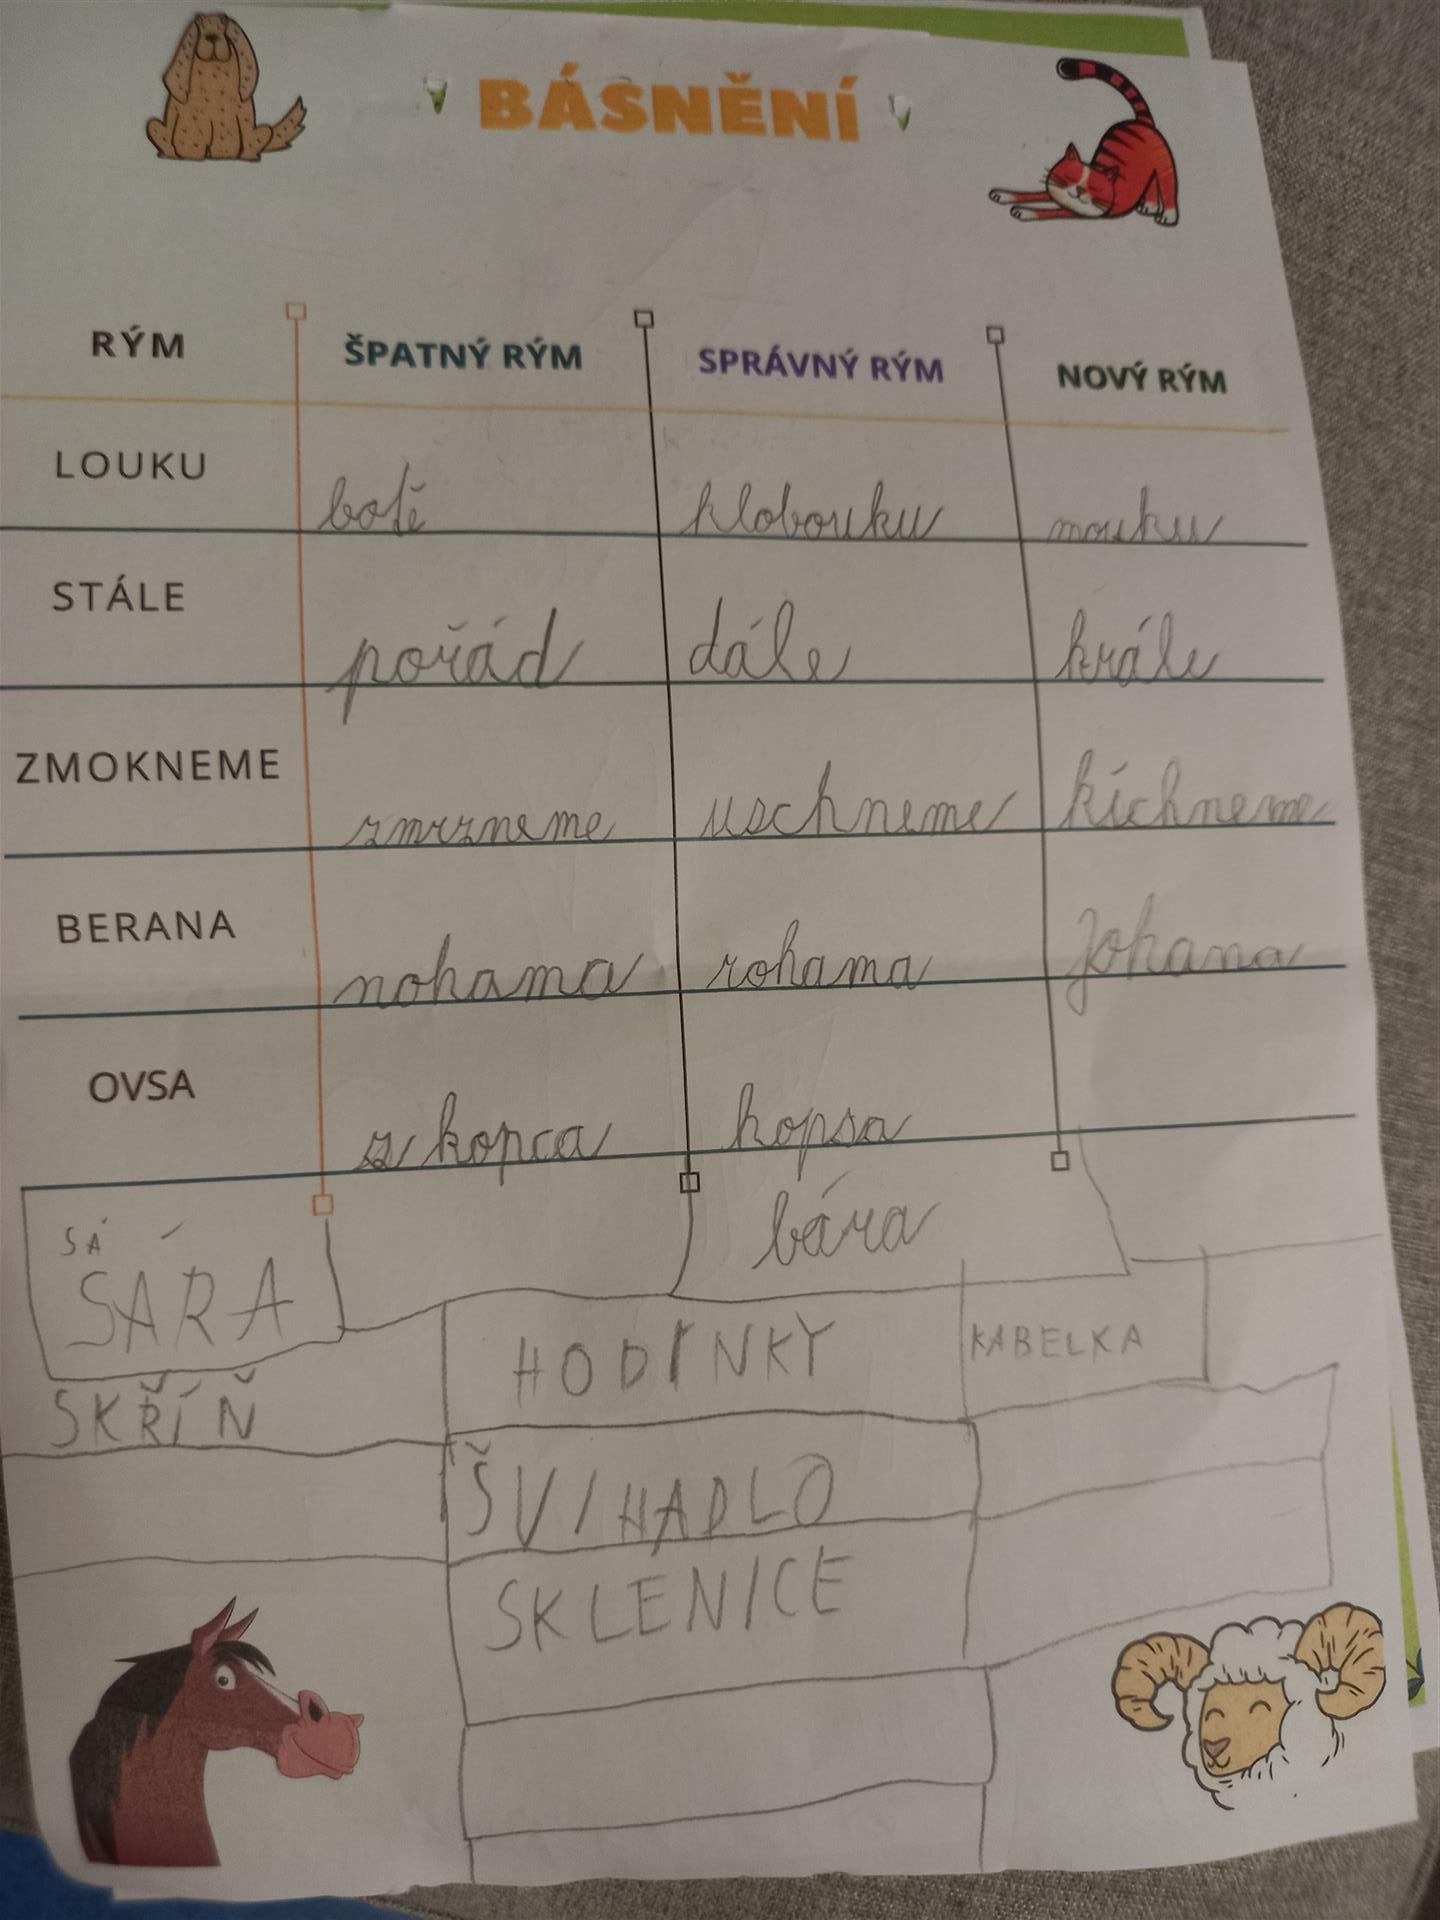 BÁSNĚNÍ
RÝM ŠPATNÝ RÝM SPRÁVNÝ RÝM NOVÝ RÝM
LOUKU botě klobouku mouku
STÁLE pořád dále krále
ZMOKNEME zmrzneme uschneme kíchneme
BERANA nohama rohama Johana
OVSA z kopca hopsa
SÁ
SÁRA bára
HODINKY KABELKA
SKŘÍŇ
ŠVIHADLO
SKLENICE